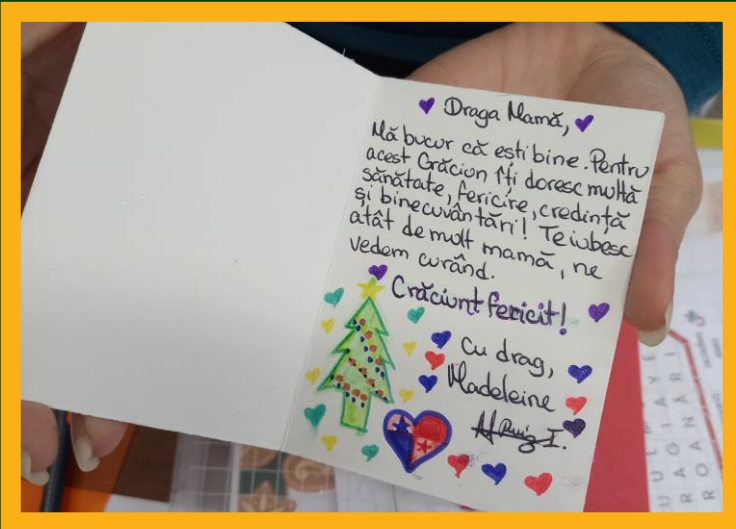 Draga Mamă,
Mă bucur că ești bine. Pentru
acest Crăciun îți doresc multă
sănătate, fericire, credință
și binecuvântări! Te iubesc
atât de mult mamă, ne
vedem curând.
Crăciunt fericit!
Cu drag,
Madeleine